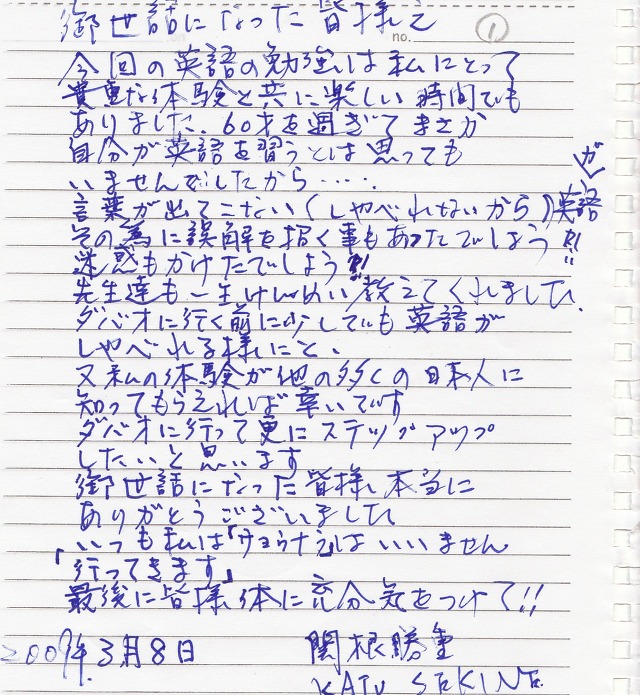 御世話になった皆様え
no. ①
今回の英語の勉強は私にとって
貴重な体験と共に楽しい時間でも
ありました、60才を過ぎてまさか
自分が英語を習うとは思っても
いませんでしたから‥‥‥
言葉が出てこない(しゃべれないから)英語が
その為に誤解を招く事もあったでしょう!!
迷惑もかけたでしょう!!
先生達も一生けんめい教えてくれました、
ダバオに行く前に少しでも英語が
しゃべれる様にと、
又私の体験が他の多くの日本人に
知ってもらえれば幸いです
ダバオに行って更にステップアップ
したいと思います
御世話になった皆様、本当に
ありがとうございました
いつも私は「サヨウナラ」はいいません
「行ってきます」
最後に皆様体に充分気をつけて!!
2009年3月8日 関根勝重
KATU SEKINE